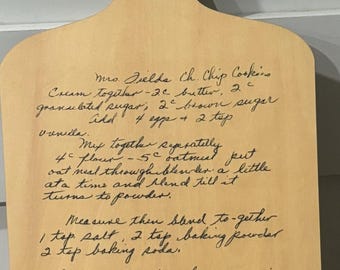 Mrs. Fields Ch. Chip Cookies
Cream together - 2c butter, 2c
granulated sugar, 2c brown sugar
add 4 eggs + 2 tsp
vanilla.
Mix together seperatelly
4c flour - 5c oatmeal put
oatmeal through blender a little
at a time and blend till it
turns to powder.
Measure then blend to-gether
1 tsp salt, 2 tsp baking powder
2 tsp baking soda.